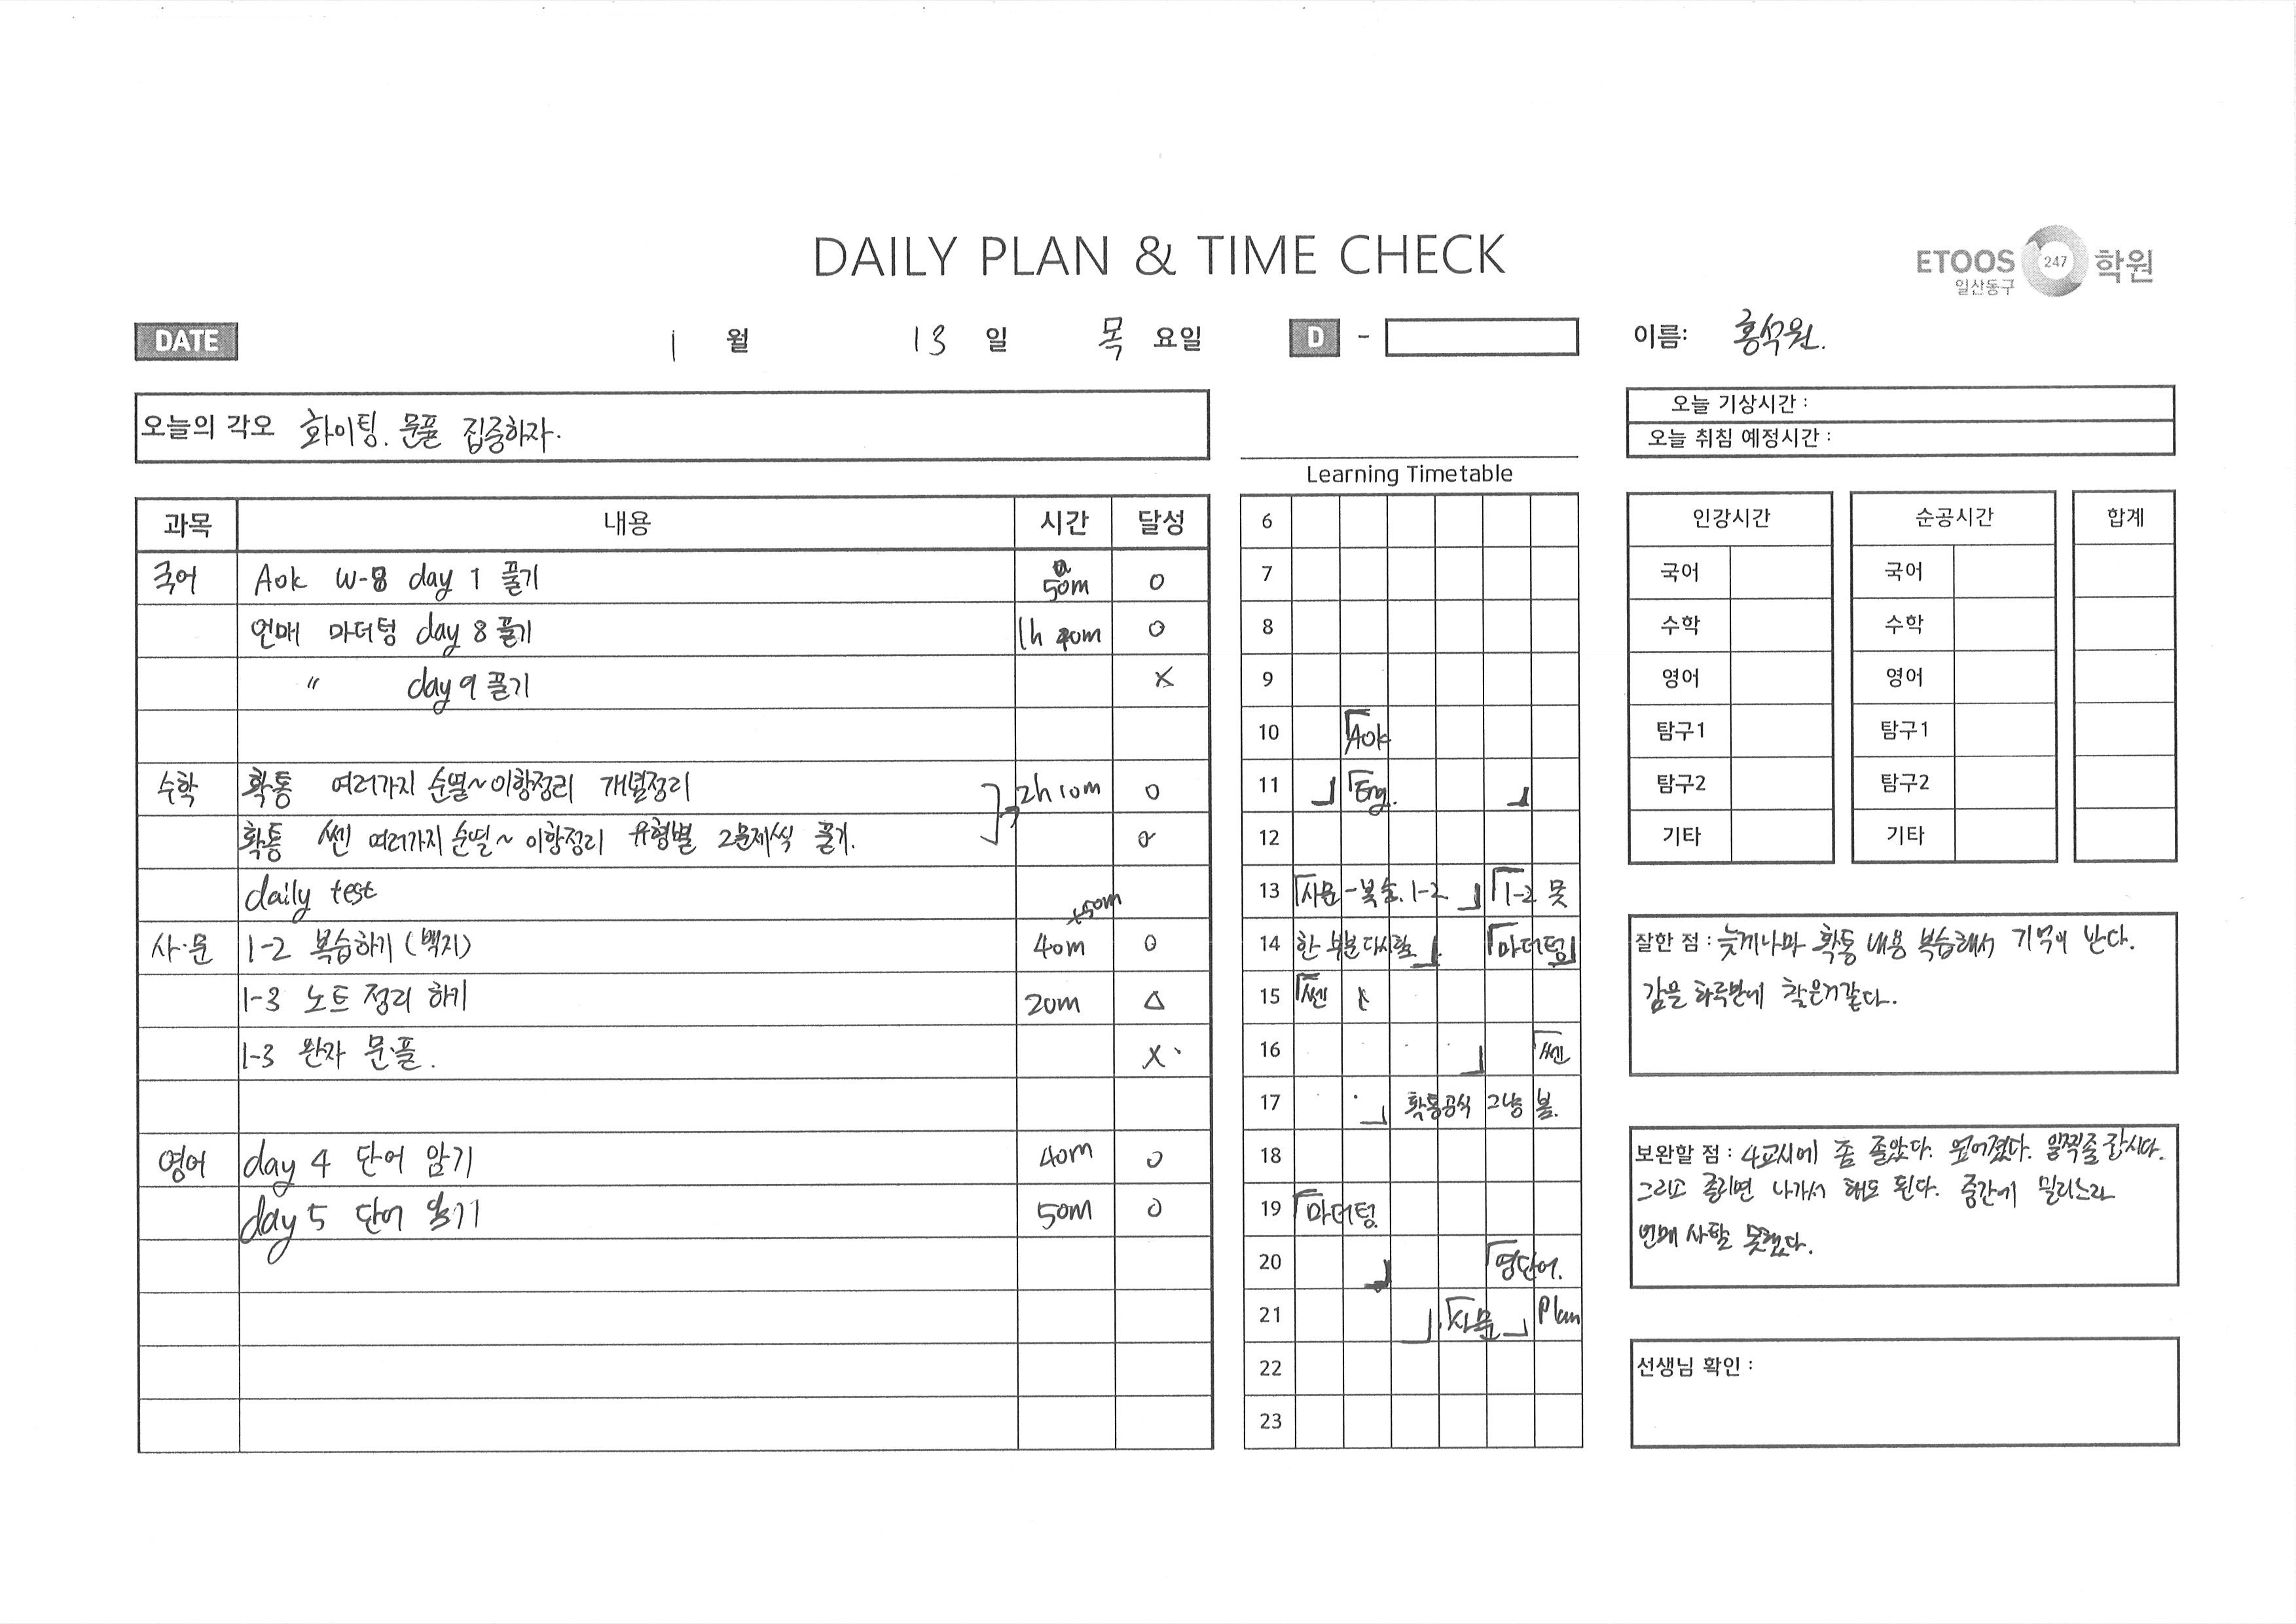 DAILY PLAN & TIME CHECK
ETOOS 247 학원
일산동구
DATE 1 월 13 일 목 요일 D -
이름: 홍석원.
오늘의 각오 화이팅. 문풀 집중하자.
오늘 기상시간 :
오늘 취침 예정시간 :
과목 내용 시간 달성
국어 Aok W-8 day 1 풀기 50m O
언매 마더텅 day 8 풀기 1h 40m O
" day 9 풀기 X
수학 확통 여러가지 순열~이항정리 개념정리 2h 10m O
확통 쎈 여러가지 순열~이항정리 유형별 2문제씩 풀기. O
daily test 50m
사·문 1-2 복습하기 (백지) 40m O
1-3 노트 정리 하기 20m △
1-3 완자 문·풀. X
영어 day 4 단어 암기 40m O
day 5 단어 암기 50m O
Learning Timetable
6
7
8
9
10 Aok
11 Eng.
12
13 사문-복습. 1-2 1-2 못
14 한 부분 다시함 마더텅
15 쎈
16 쎈
17 확통공식 그냥 봄.
18
19 마더텅.
20 영단어.
21 사문 Plan
22
23
인강시간 순공시간 합계
국어 국어
수학 수학
영어 영어
탐구1 탐구1
탐구2 탐구2
기타 기타
잘한 점 : 늦게나마 확통 내용 복습해서 기억이 난다.
감을 하루만에 찾은거같다.
보완할 점 : 4교시에 좀 졸았다. 일찍좀 잡시다.
그리고 졸리면 나가서 해도 된다. 중간에 밀리느라
언매 사탐 못했다.
선생님 확인 :